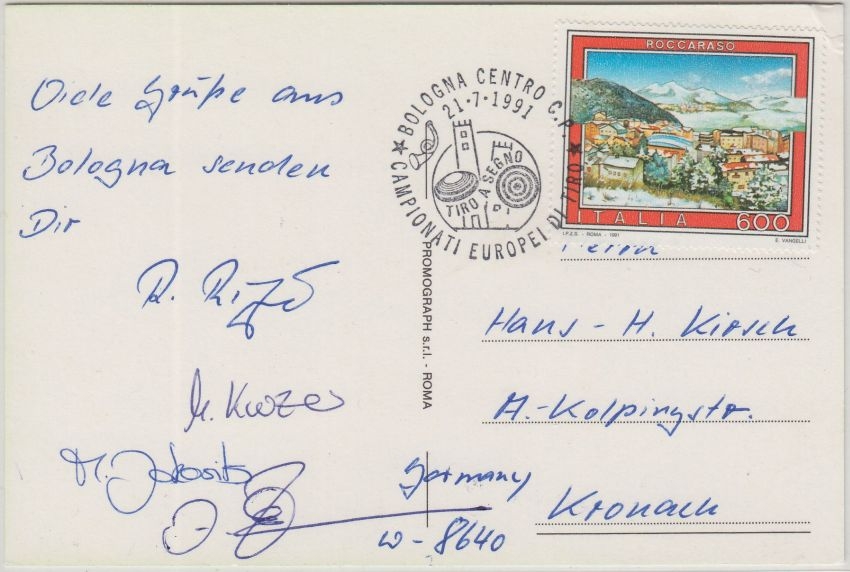 Viele Grüße aus
Bologna senden
Dir
BOLOGNA CENTRO C.P.
21-7-1991
TIRO A SEGNO
CAMPIONATI EUROPEI DI TIRO
ROCCARASO
ITALIA 600
I.P.Z.S. - ROMA - 1991 E. VANGELLI
PROMOGRAPH s.r.l. - ROMA
Herrn
Hans - H. Kirsch
A.-Kolpingstr.
Germany
W - 8640 Kronach